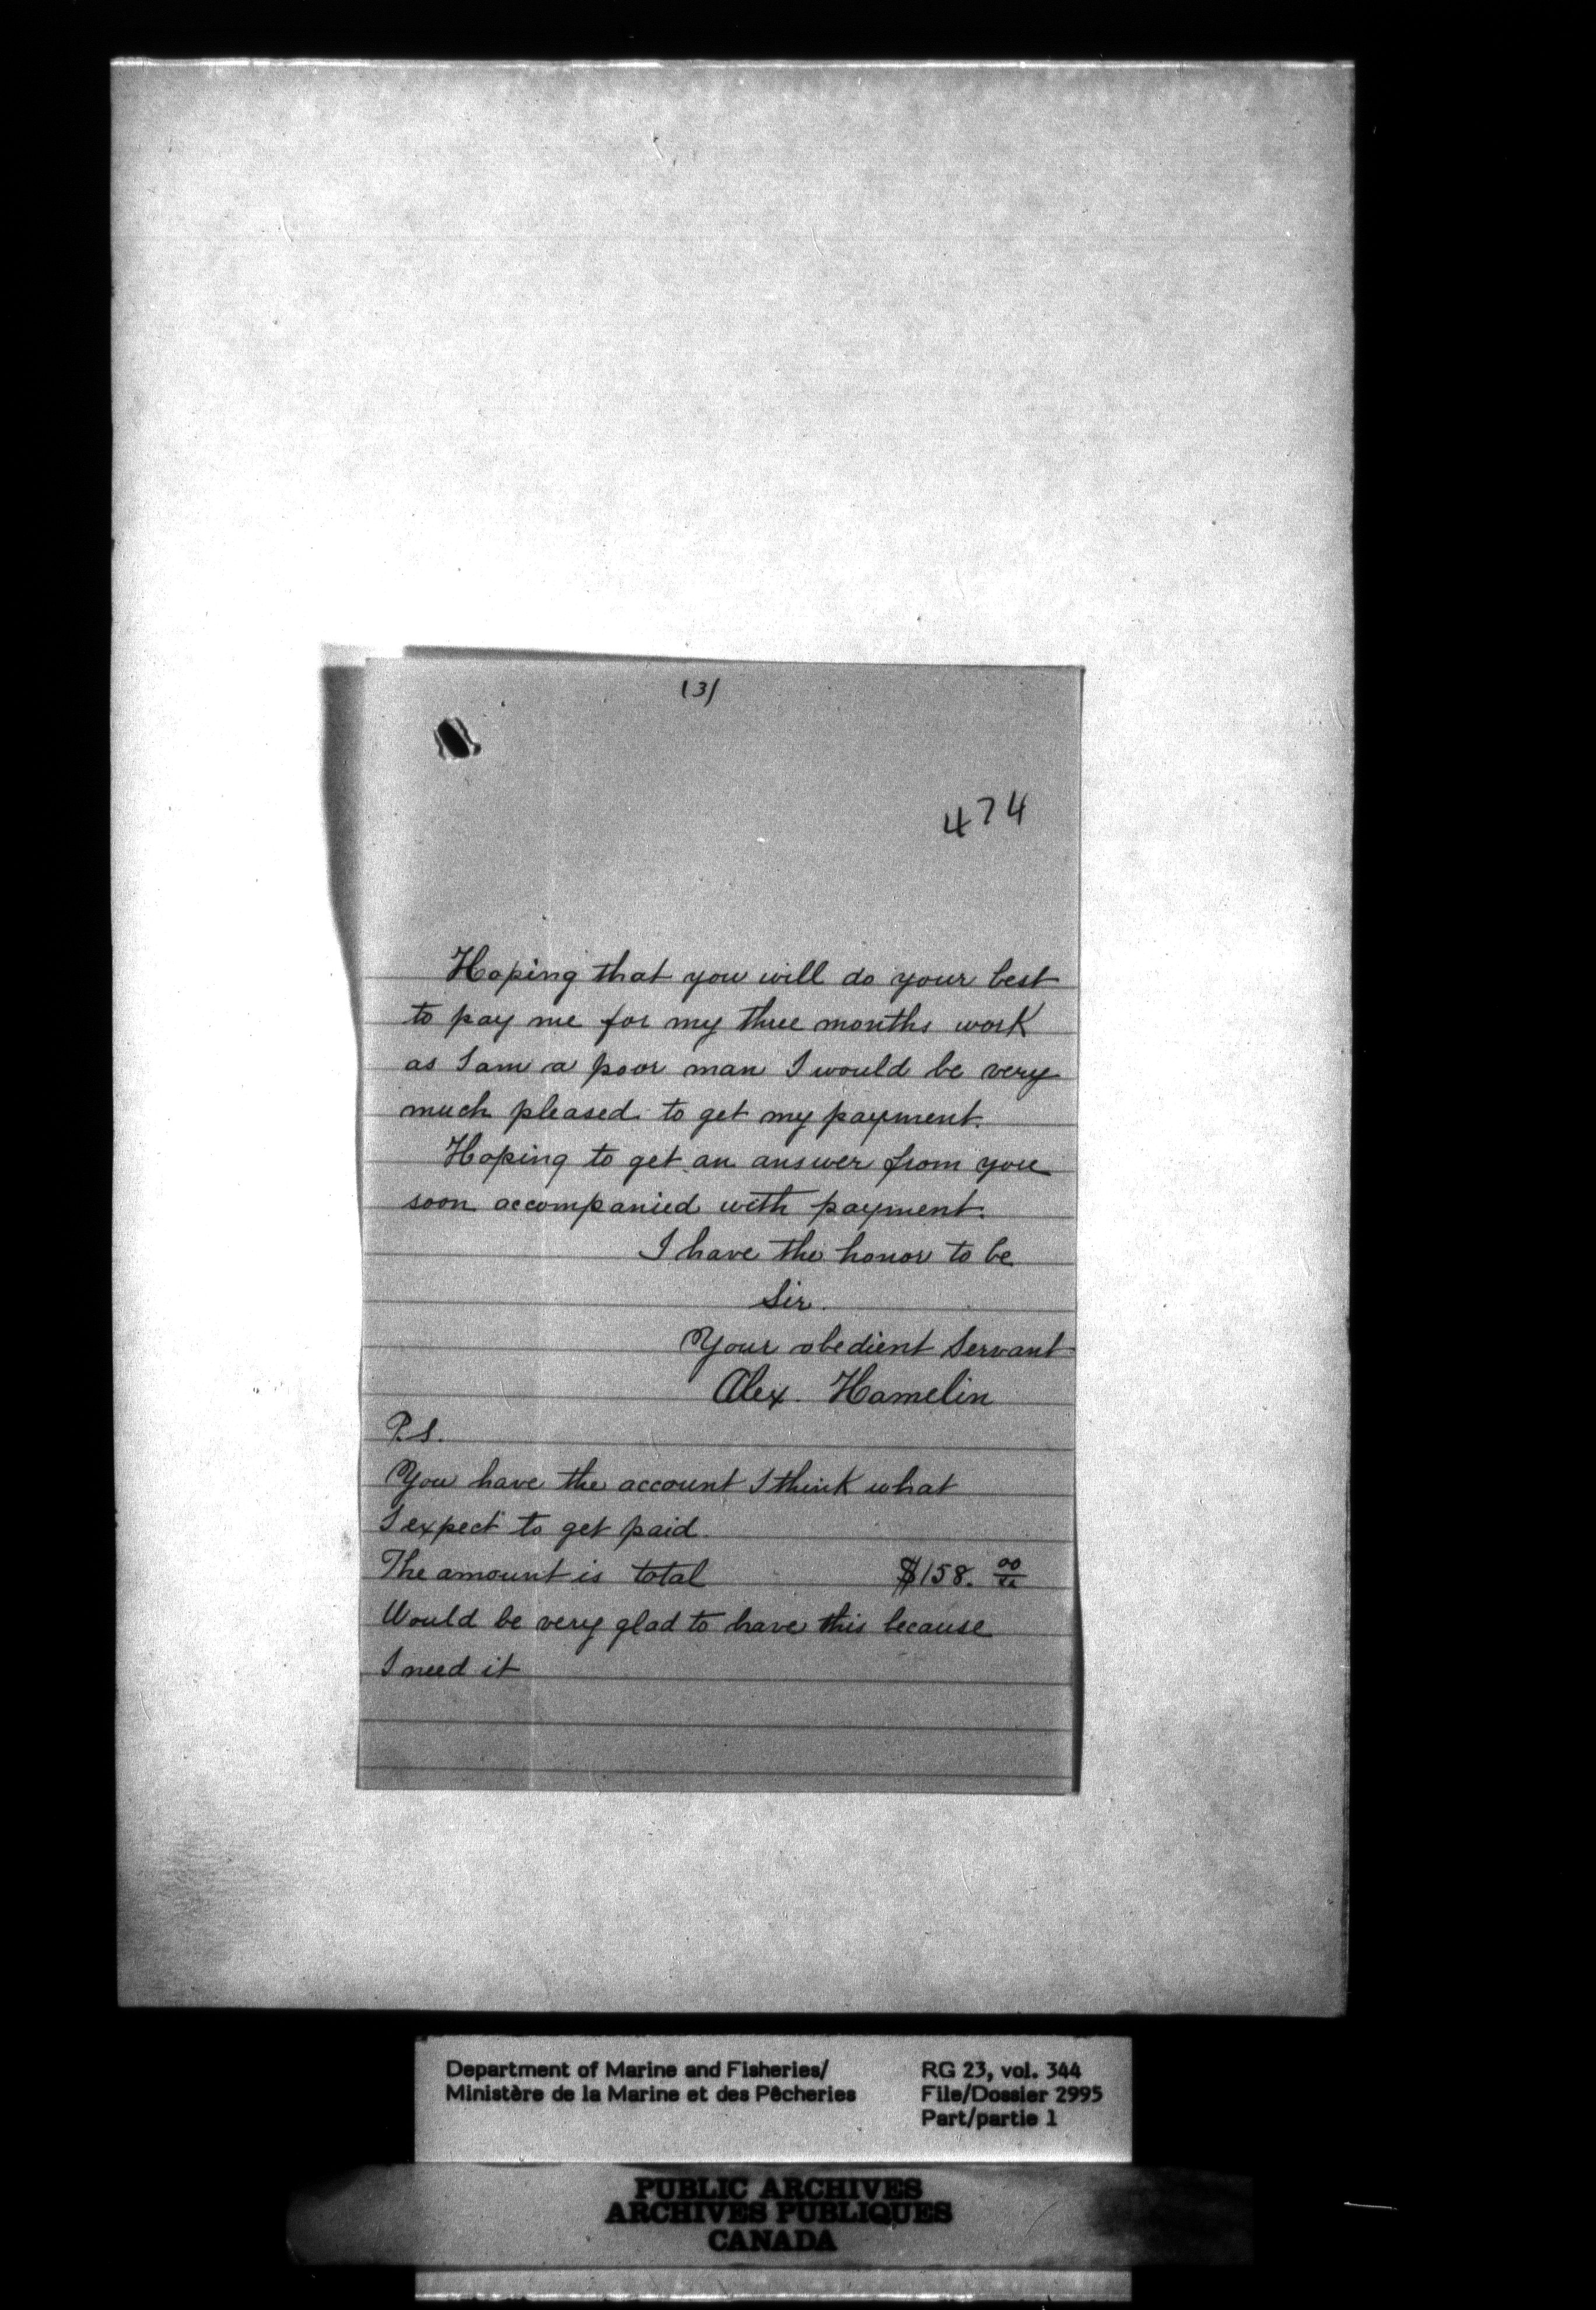 (3)
474
Hoping that you will do your best
to pay me for my three months work
as I am a poor man I would be very
much pleased to get my payment.
Hoping to get an answer from you
soon accompanied with payment.
I have the honor to be
Sir.
Your obedient Servant
Alex. Hamelin
P.S.
You have the account I think what
I expect to get paid.
The amount is total $158. 00/xx
Would be very glad to have this because
I need it
Department of Marine and Fisheries/ RG 23, vol. 344
Ministère de la Marine et des Pêcheries File/Dossier 2995
Part/partie 1
PUBLIC ARCHIVES
ARCHIVES PUBLIQUES
CANADA